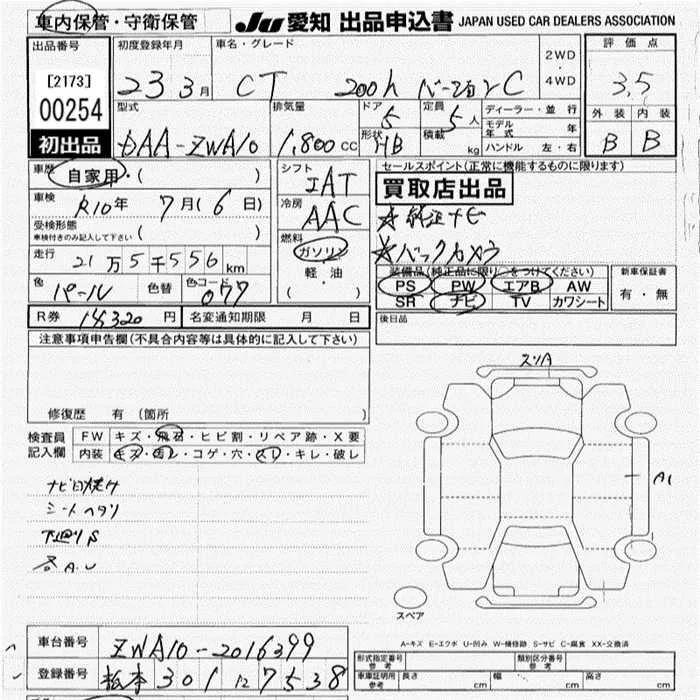 車内保管・守衛保管
JU 愛知 出品申込書 JAPAN USED CAR DEALERS ASSOCIATION
出品番号
[2173]
00254
初出品
初度登録年月
23 3月
車名・グレード
CT 200h バージョンC
2WD
・
4WD
評価点
3.5
外装 内装
B B
型式
DAA-ZWA10
排気量
1,800 cc
ドア
5
形状
HB
定員
5人
積載
kg
ディーラー・並行
モデル年式 年
ハンドル 左・右
車歴
自家用・( )
車検
R10年 7月(6日)
受検形態
車検付きのみ記入して下さい ( )
走行
21万5千556km
色
パール
色替
色コード
077
シフト
IAT
冷房
AAC
燃料
ガソリン
軽・油
( ・ )
セールスポイント(正常に機能するものに限ります)
買取店出品
☆純正ナビ
☆バックカメラ
装備品(純正品に限り○をつけてください)
PS PW エアB AW
SR ナビ TV カワシート
新車保証書
有・無
R券 円
名変通知期限 月 日
後日品
注意事項申告欄(不具合内容等は具体的に記入して下さい)
修復歴 有(箇所 )
検査員記入欄
FW キズ・飛石・ヒビ割・リペア跡・X要
内装 キズ・汚レ・コゲ・穴・スレ・キレ・破レ
ナビ日焼け
シートヘタリ
下廻りS
各A.U
スリA
A1
スペア
A-キズ E-エクボ U-凹み W-補修跡 S-サビ C-腐食 XX-交換済
車台番号
ZWA10-2016399
登録番号
301 7538
形式指定番号
参考
類別区分番号
参考
車庫証明用
参考
長さ cm
幅 cm
高さ cm